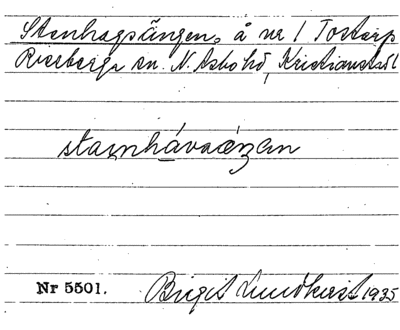 Stenhagsängen, å nr 1 Tostarp
Riseberga sn. N. Åsbo hd, Kristianst. l
stai̯nhávaæ̀ŋən
Nr 5501.
Birgit Lundkvist 1935